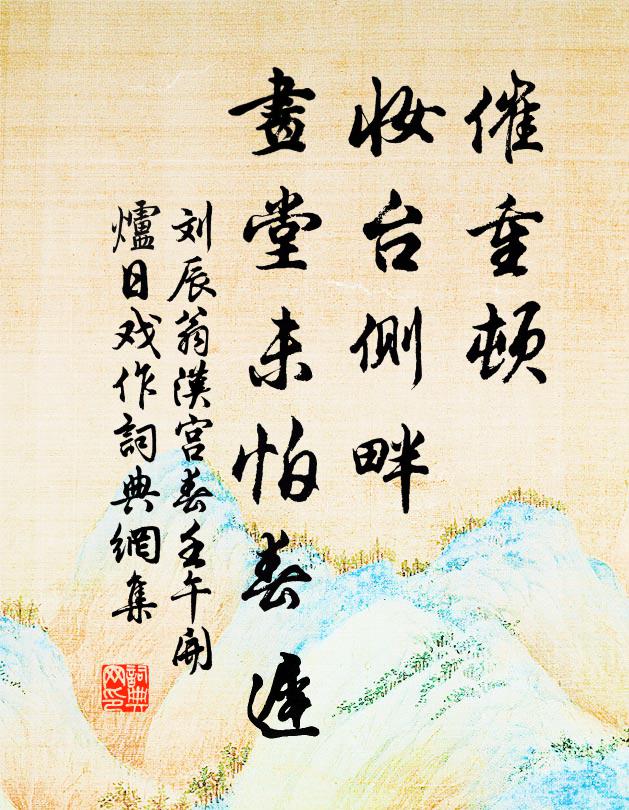 催重顿
妆台侧畔
画堂未怕春迟
刘辰翁漢宫春壬午開
爐日戏作詞典網集
詞典
网印